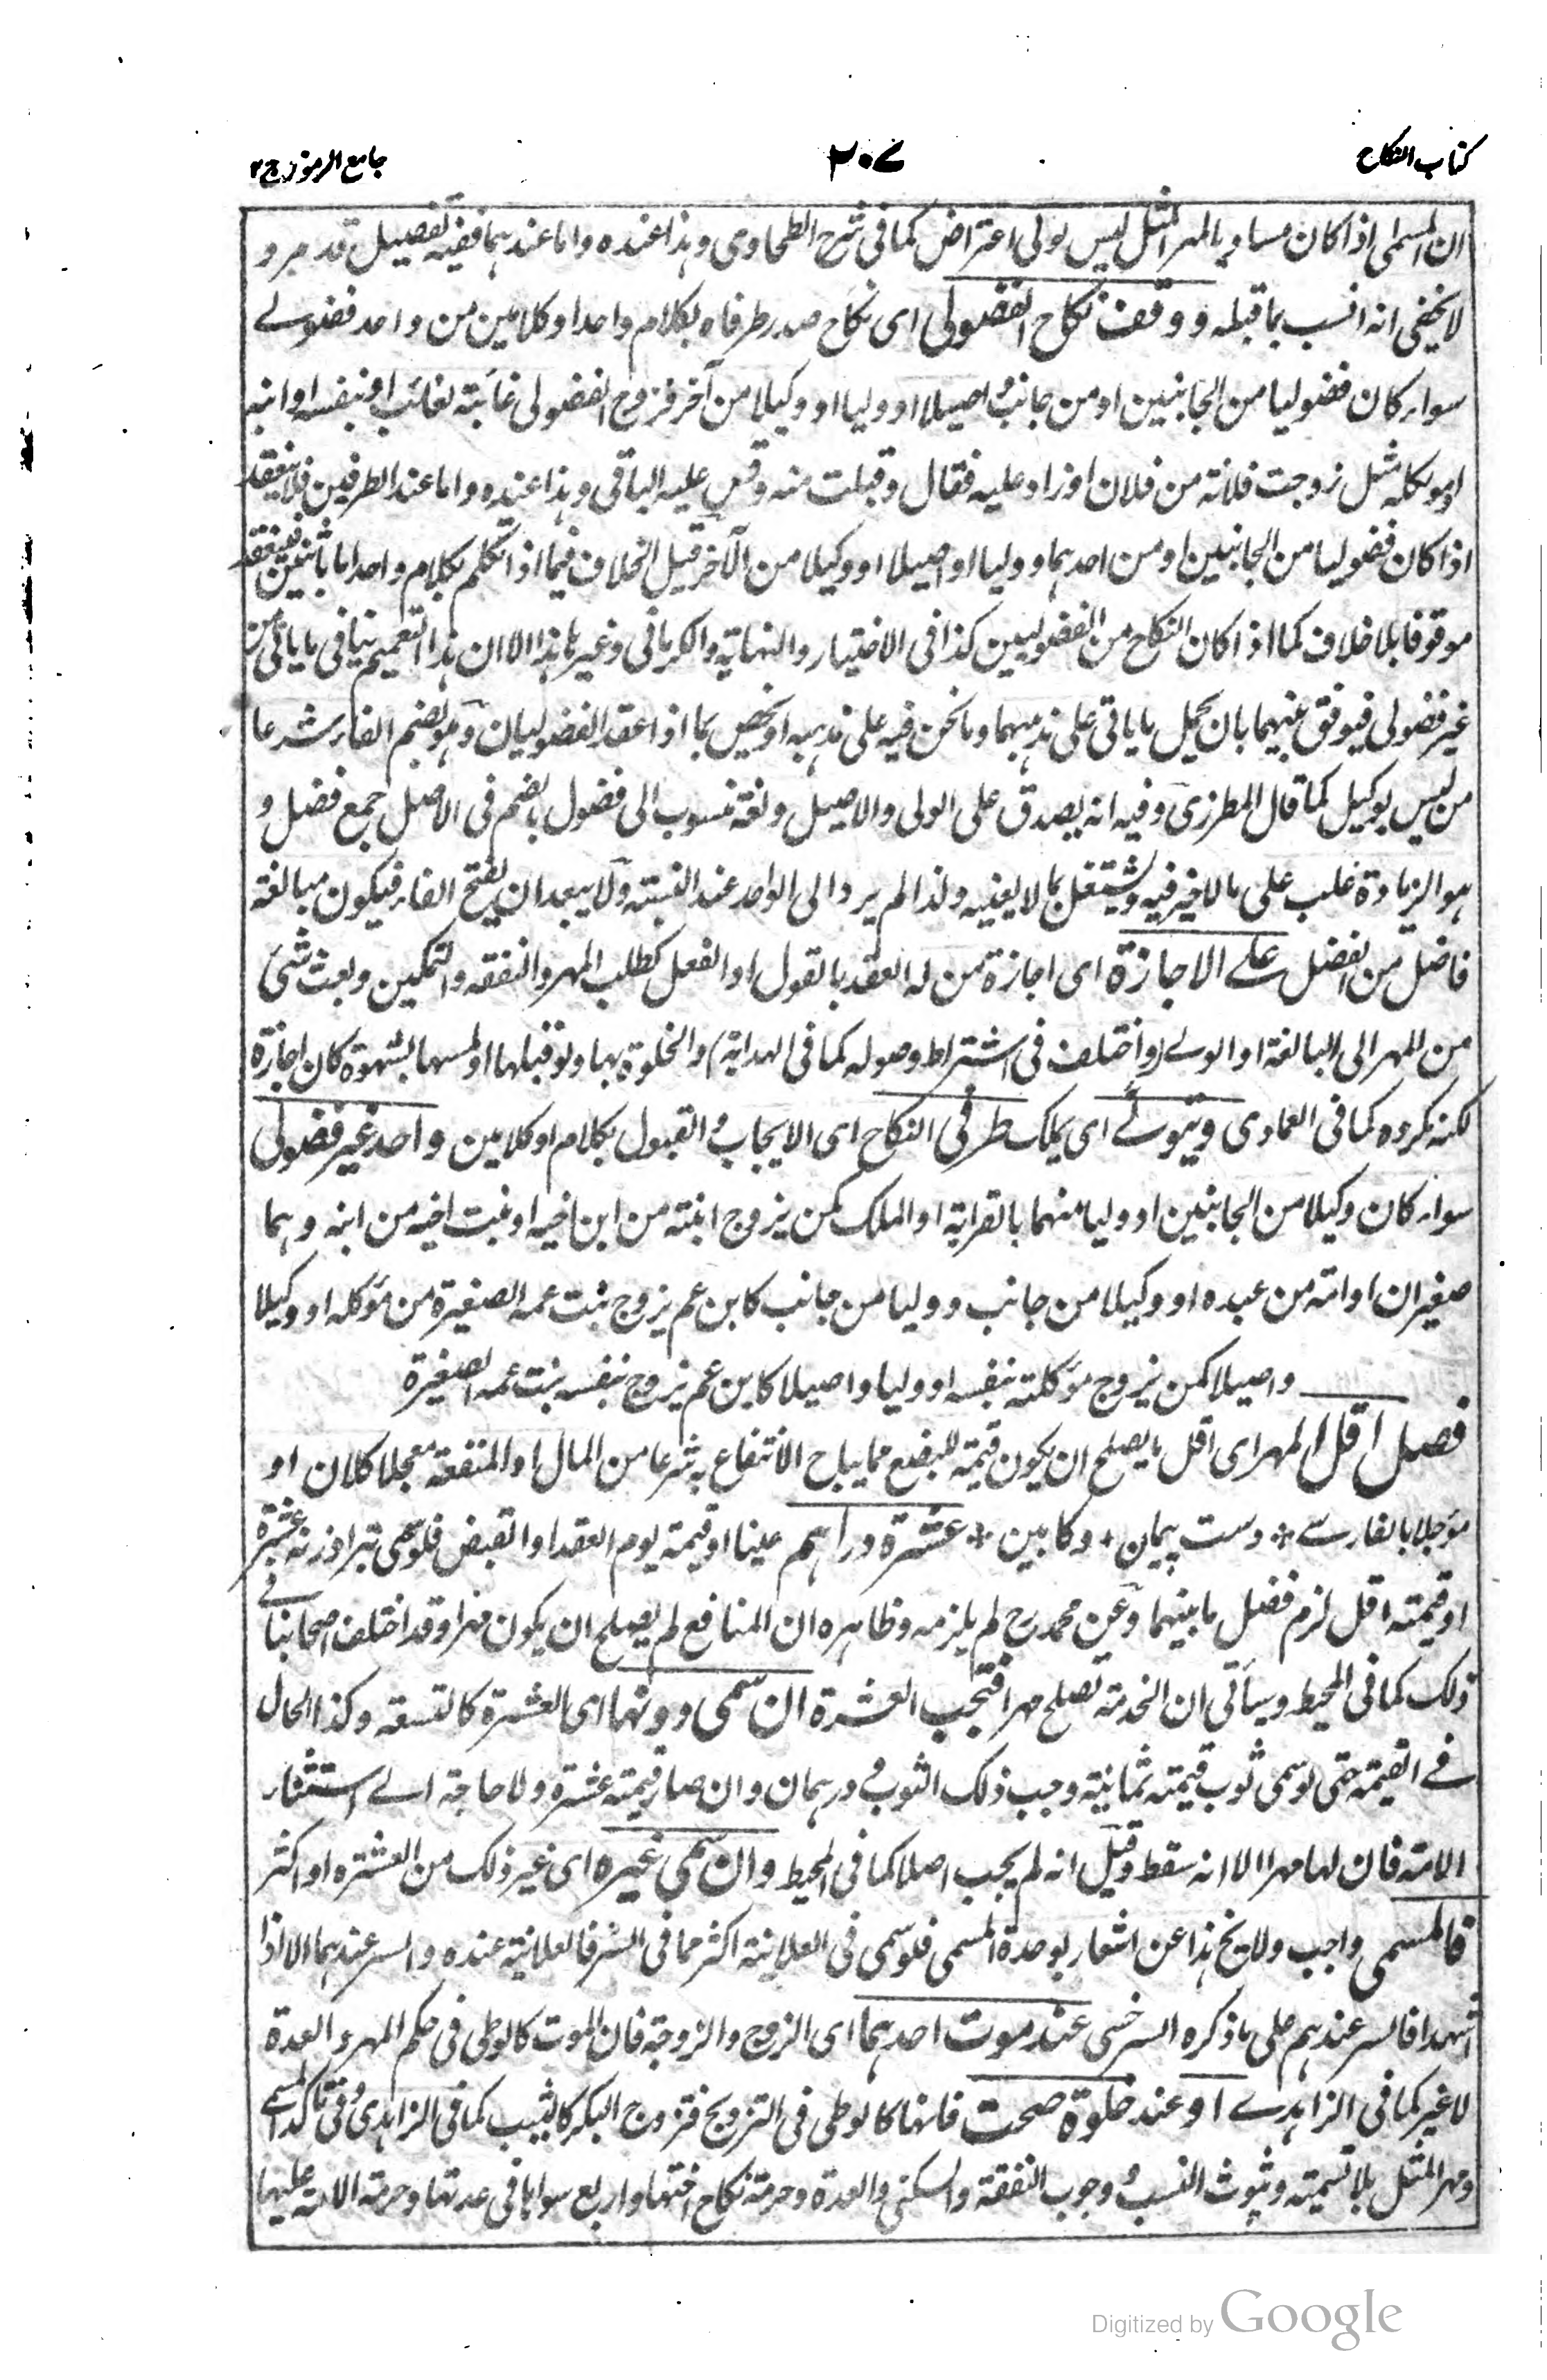 كتاب النكاح
٢٠٧
جامع الرموز ج ٢
ان المسمى اذا كان مساويا لمهر المثل ليس لولى اعتراض كما فى شرح الطحاوى وهذا عنده واما عندهما ففيه تفصيل قد مر و
لا يخفى انه انسب بما قبله ووقف نكاح الفضولى اى نكاح صدر طرفاه بكلام واحد او كلامين من واحد فضولے
سواء كان فضوليا من الجانبين او من جانب اصيلا او وليا او وكيلا من آخر فزوج الفضولى غائبة لغائب او بنفسه او ابنه
او موكله مثل زوجت فلانة من فلان او زاد عليه فقال وقبلت منه وقس عليه الباقى وهذا عنده واما عند الطرفين فلا ينعقد
اذا كان فضوليا من الجانبين او من احدهما ووليا او اصيلا او وكيلا من الآخر قيل الخلاف فيما اذا تكلم بكلام واحد اما باثنين فينعقد
موقوفا بلا خلاف كما اذا كان النكاح من الفضوليين كذا فى الاختيار والنهاية والكرمانى وغيرها هذا الا ان هذا التعميم ينافى ما ياتى من
غير فضولى فيوفق بينهما بان يحمل ما ياتى على مذهبهما وما نحن فيه على مذهبه او يخص بما اذا عقد الفضوليان وهو بضم الفاء شرعا
من ليس بوكيل كما قال المطرزى وفيه انه يصدق على الولى والاصيل ولغة منسوب الى فضول بالضم فى الاصل جمع فضل و
هو الزيادة غلب على ما لا خير فيه ويشتغل بما لا يعنيه ولذا لم يرد الى الواحد عند النسبة ولا يبعد ان يفتح الفاء فيكون مبالغة
فاضل من الفضل علے الاجازة اى اجازة من له العقد بالقول او الفعل كطلب المهر والنفقه والتمكين وبعث شئ
من المهر الى البالغة او الولے (واختلف فى اشتراط وصوله كما فى الهداية) والخلوة بها ولو قبلها او لمسها بشهوة كان اجازة
لكنه مكروه كما فى العمادى ويتولے اى يملك طرفى النكاح اى الايجاب والقبول بكلام او كلامين واحد غير فضولى
سواء كان وكيلا من الجانبين او وليا منهما بالقرابة او الملك كمن يزوج ابنته من ابن اخيه او بنت اخيه من ابنه وهما
صغيران او امته من عبده او وكيلا من جانب ووليا من جانب كابن عم يزوج بنت عمه الصغيرة من موكله او وكيلا
واصيلا كمن يزوج موكلته بنفسه او وليا واصيلا كابن عم يزوج بنفسه بنت عمه الصغيرة
فصل اقل المهر اى اقل ما يصلح ان يكون قيمة للبضع مما يباح الانتفاع به شرعا من المال او المنفعة معجلا كان او
مؤجلا بالفارسے * دست پيمان * وكابين * عشرة دراهم عينا او قيمة يوم العقد او القبض فلو سمى تبرا وزنه عشرة
او قيمته اقل لزم فضل ما بينهما وعن محمد رح لم يلزمه وظاهره ان المنافع لم يصلح ان يكون مهرا وقد اختلف اصحابنا فے
ذلك كما فى المحيط وسيأتى ان الخدمة تصلح مهرا فتجب العشرة ان سمى دونها اى العشرة كالتسعة وكذا الحال
فے القيمة حتى لو سمى ثوب قيمته ثمانية وجب ذلك الثوب ودرهمان وان صار قيمته عشرة ولا حاجة الے استثناء
الامة فان لها مهرا الا انه سقط وقيل انه لم يجب اصلا كما فى المحيط وان سمى غيره اى غير ذلك من العشرة او اكثر
فالمسمى واجب ولا يخ هذا عن اشعار بوحدة المسمى فلو سمى فى العلانية اكثر مما فى السر فالعلانية عنده والسر عندهما الا اذا
اشهدا فالسر عندهم على ما ذكره السرخسى عند موت احدهما اى الزوج والزوجة فان الموت كالوطى فى حكم المهر والعدة
لا غير كما فى الزاهدے او عند خلوة صحت فانها كالوطى فى التزويج فتزوج البكر كالثيب كما فى الزاهدى وفى تأكد المسمے
ومهر المثل بلا تسمية وثبوت النسب ووجوب النفقة والسكنى والعدة وحرمة نكاح اختها واربع سواها فى عدتها وحرمة الامة عليها
Digitized by Google